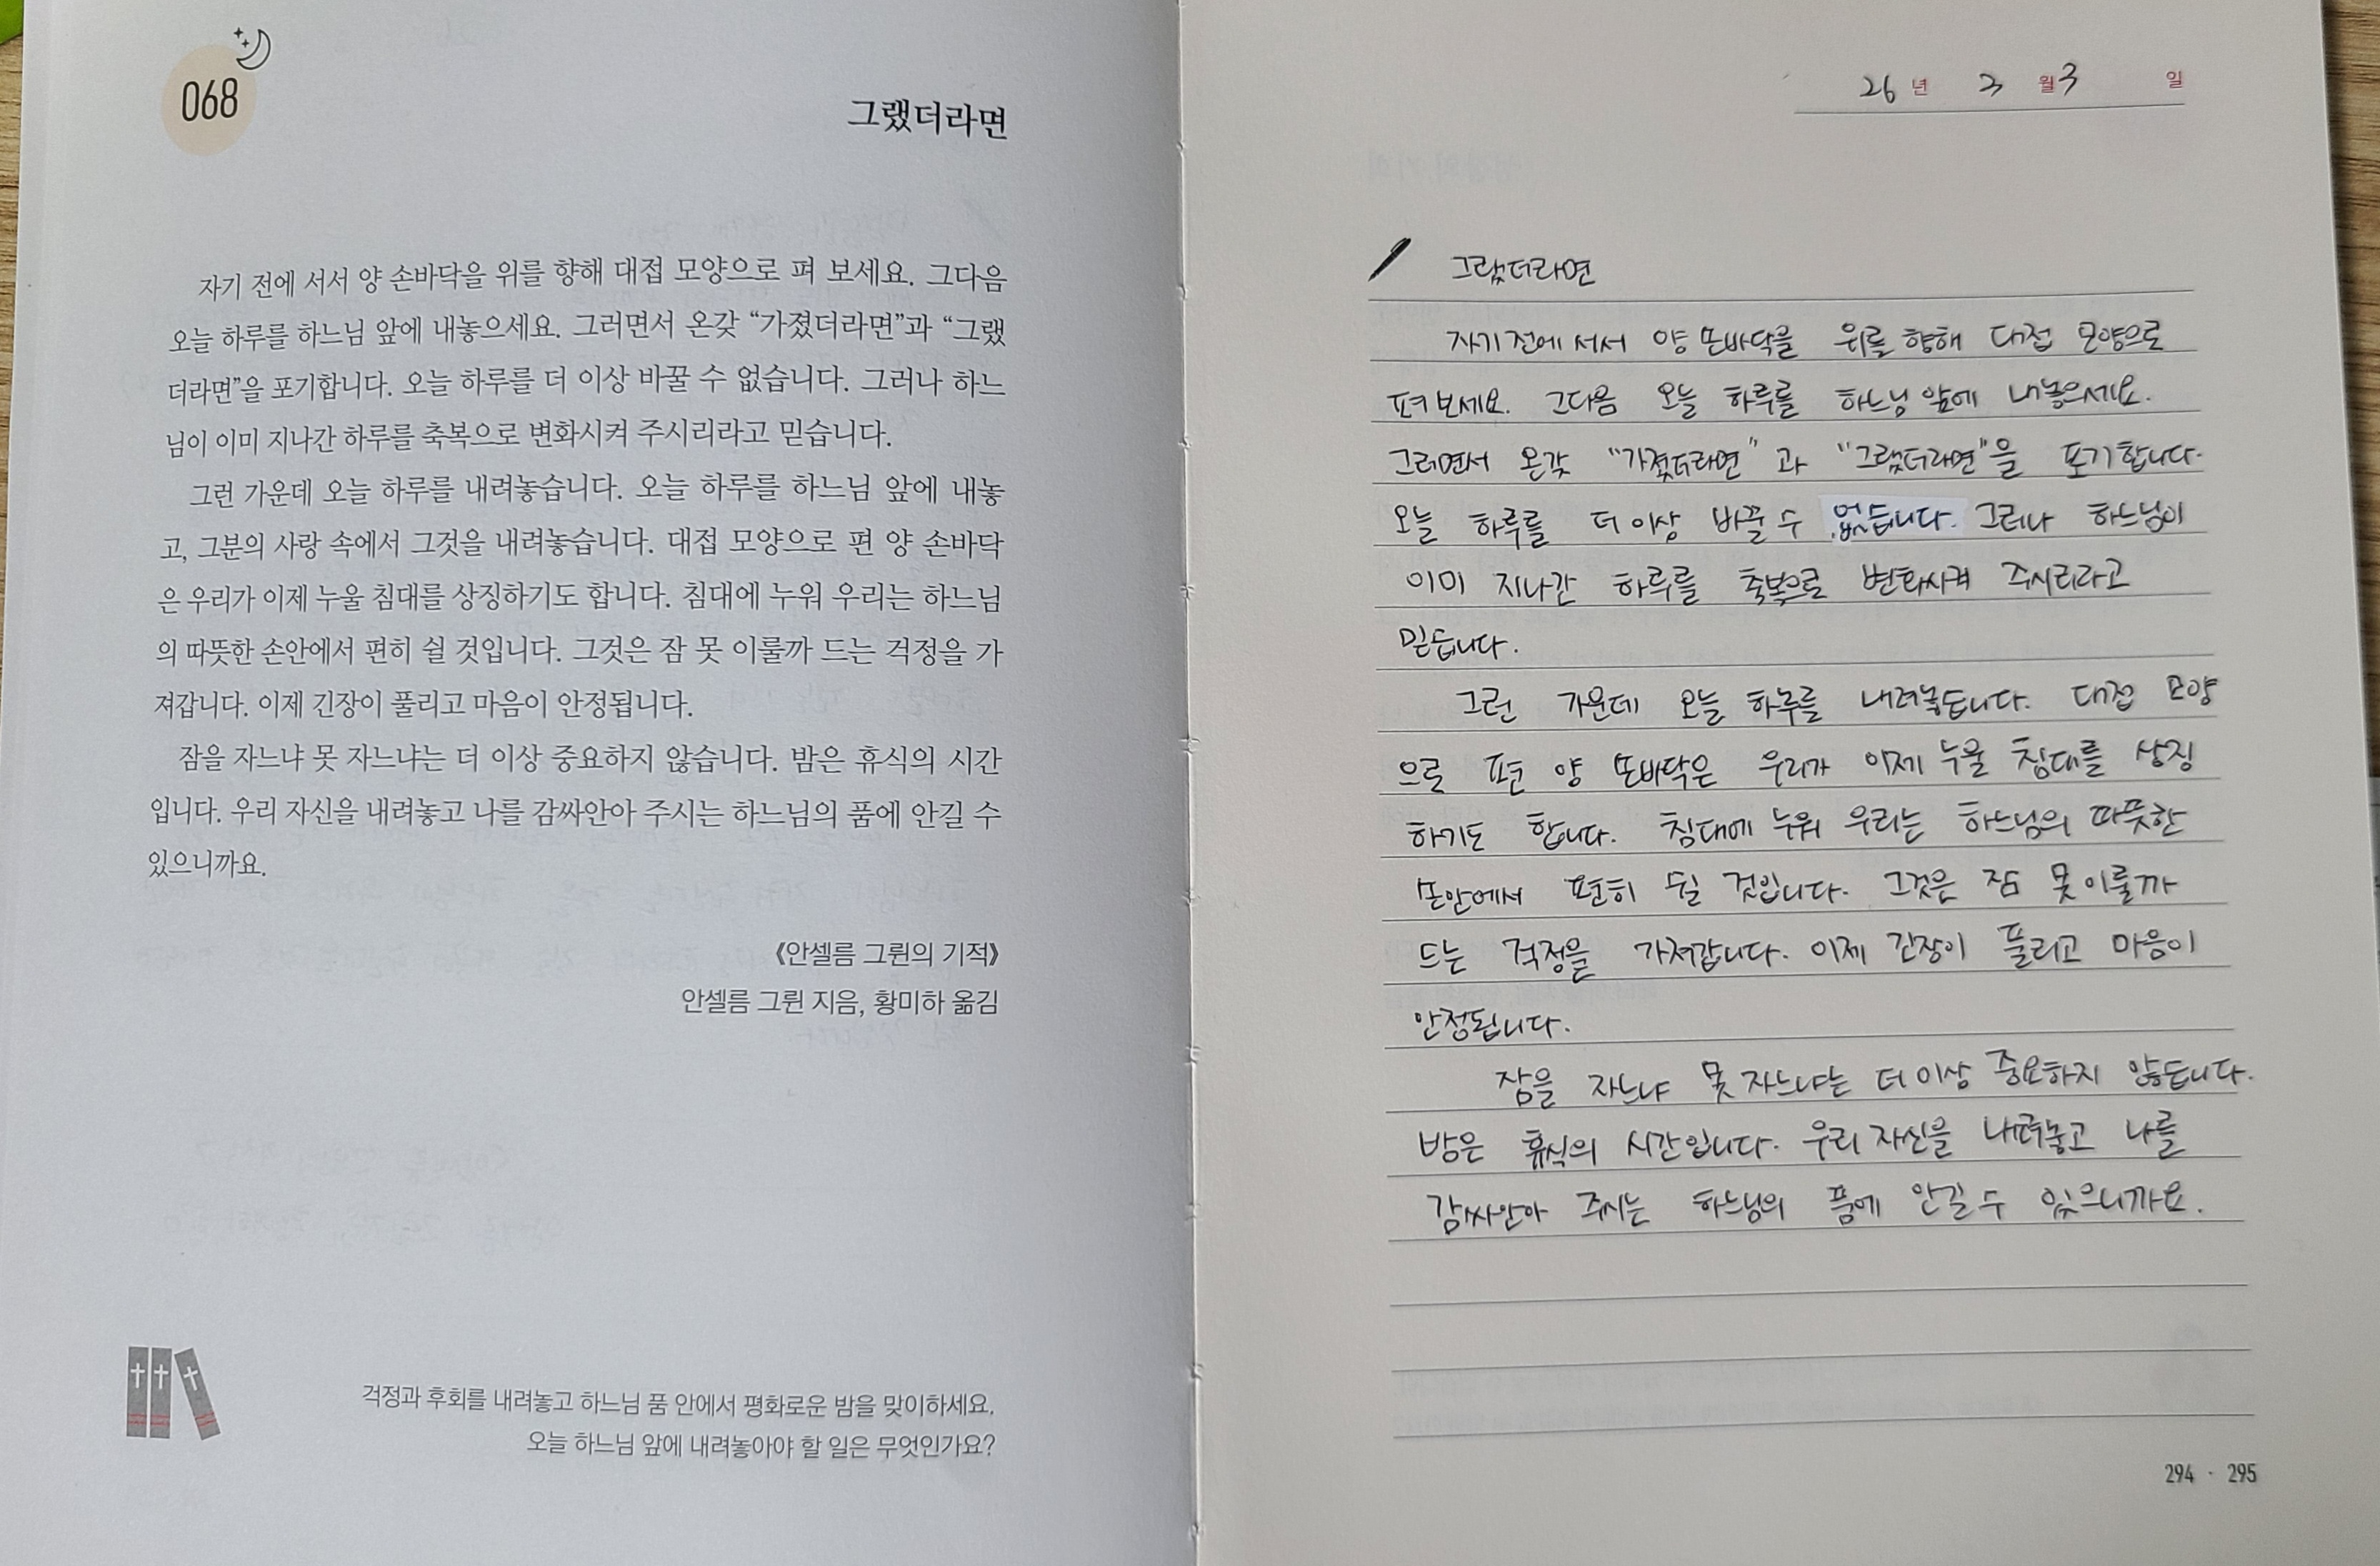 068
그랬더라면
자기 전에 서서 양 손바닥을 위를 향해 대접 모양으로 펴 보세요. 그다음
오늘 하루를 하느님 앞에 내놓으세요. 그러면서 온갖 “가졌더라면”과 “그랬
더라면”을 포기합니다. 오늘 하루를 더 이상 바꿀 수 없습니다. 그러나 하느
님이 이미 지나간 하루를 축복으로 변화시켜 주시리라고 믿습니다.
그런 가운데 오늘 하루를 내려놓습니다. 오늘 하루를 하느님 앞에 내놓
고, 그분의 사랑 속에서 그것을 내려놓습니다. 대접 모양으로 편 양 손바닥
은 우리가 이제 누울 침대를 상징하기도 합니다. 침대에 누워 우리는 하느님
의 따뜻한 손안에서 편히 쉴 것입니다. 그것은 잠 못 이룰까 드는 걱정을 가
져갑니다. 이제 긴장이 풀리고 마음이 안정됩니다.
잠을 자느냐 못 자느냐는 더 이상 중요하지 않습니다. 밤은 휴식의 시간
입니다. 우리 자신을 내려놓고 나를 감싸안아 주시는 하느님의 품에 안길 수
있으니까요.
《안셀름 그륀의 기적》
안셀름 그륀 지음, 황미하 옮김
걱정과 후회를 내려놓고 하느님 품 안에서 평화로운 밤을 맞이하세요.
오늘 하느님 앞에 내려놓아야 할 일은 무엇인가요?
26 년 월 3 일
그랬더라면
자기 전에 서서 양 손바닥을 위를 향해 대접 모양으로
펴 보세요. 그다음 오늘 하루를 하느님 앞에 내놓으세요.
그러면서 온갖 "가졌더라면"과 "그랬더라면"을 포기합니다.
오늘 하루를 더 이상 바꿀 수 없습니다. 그러나 하느님이
이미 지나간 하루를 축복으로 변화시켜 주시리라고
믿습니다.
그런 가운데 오늘 하루를 내려놓습니다. 대접 모양
으로 편 양 손바닥은 우리가 이제 누울 침대를 상징
하기도 합니다. 침대에 누워 우리는 하느님의 따뜻한
손안에서 편히 쉴 것입니다. 그것은 잠 못 이룰까
드는 걱정을 가져갑니다. 이제 긴장이 풀리고 마음이
안정됩니다.
잠을 자느냐 못 자느냐는 더 이상 중요하지 않습니다.
밤은 휴식의 시간입니다. 우리 자신을 내려놓고 나를
감싸안아 주시는 하느님의 품에 안길 수 있으니까요.
294 · 295